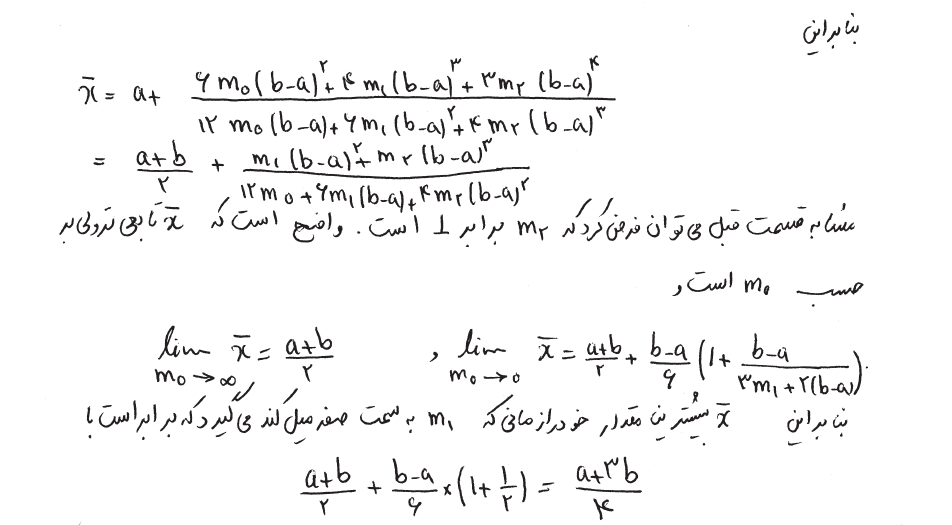 بنابراین
x̄ = a + (۶m₀(b-a)^۲ + ۴m₁(b-a)^۳ + ۳m₂(b-a)^۴) / (۱۲m₀(b-a) + ۶m₁(b-a)^۲ + ۴m₂(b-a)^۳)
= (a+b)/۲ + (m₁(b-a)^۲ + m₂(b-a)^۳) / (۱۲m₀ + ۶m₁(b-a) + ۴m₂(b-a)^۲)
مشابه قسمت قبل می توان فرض کرد که m₂ برابر ۱ است. واضح است که x̄ تابعی نزولی بر
حسب m₀ است و
lim_{m₀→∞} x̄ = (a+b)/۲ , lim_{m₀→۰} x̄ = (a+b)/۲ + (b-a)/۶ (۱ + (b-a)/(۳m₁+۲(b-a))).
بنابراین x̄ بیشترین مقدار خود را زمانی که m₁ به سمت صفر میل کند می گیرد که برابر است با
(a+b)/۲ + (b-a)/۶ × (۱ + ۱/۲) = (a+۳b)/۴